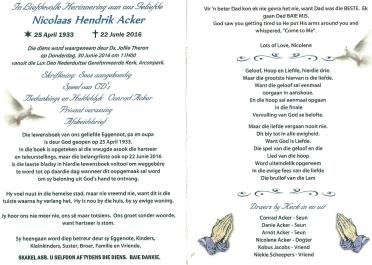 In Liefdevolle Herinnering aan ons Geliefde
Nicolaas Hendrik Acker
25 April 1933 22 Junie 2016
Die diens word waargeneem deur Ds. Jollie Theron
op Donderdag, 30 Junie 2016 om 11H00
vanuit die Lun Deo Nederduitse Gereformeerde Kerk, Arconpark.
Skriflesing Soos aangekondig
Speel van CD's
Bedankings en Huldeblyk Conrad Acker
Privaat verassing
Afskeidsbrief
Die lewensboek van ons geliefde Eggenoot, pa en oupa
is deur God geopen op 25 April 1933.
In die boek is opgeteken al die vreugde asook die hartseer
en teleurstellings, maar die belangrikste ook op 22 Junie 2016
is die laaste bladsy in hierdie lewensboek voltooi om weggebêre
te word tot op daardie dag wanneer dit oopgemaak sal word
om sy beloning uit God's hand te ontvang.
Hy voel nout in die hemelse stad, maar nie vreemd nie, want dit is die
tuiste waarna hy verlang het. Hy is nou by die huis, by sy ewige woning.
Jy hoor ons nie meer nie, ons sê maar totsiens. Ons groet sonder woorde,
want hartseer is stom.
Sy heengaan word diep betreur deur sy Eggenote, Kinders,
Kleinkinders, Suster, Broer, Familie en Vriende.
SKAKEL ASB. U SELFOON AF TYDENS DIE DIENS. BAIE DANKIE.
Vir 'n beter Dad kon ek nie gevra het nie, want Dad was die BESTE. Ek
gaan Dad BAIE MIS.
God saw you getting tired so He put His arms around you and
whispered, "Come to Me".
Lots of Love, Nicolene
Geloof, Hoop en Liefde, hierdie drie.
Maar die grootste hiervan is die liefde.
Want die geloof sal eenmaal
oorgaan in aanskoue.
En die hoop sal eenmaal opgaan
in die finale
Vervulling van God se belofte.
Maar die liefde vergaan nooit nie.
Dit bly tot in alle ewigheid.
Want God is Liefde.
Die spel van die geloof en die
Lied van die hoop
Word uiteindelik opgeneem
In die ewige fees van die liefde
Die bruilof van die Lam
Draers by Kerk in en uit
Conrad Acker - Seun
Danie Acker - Seun
Arnót Acker - Seun
Nicolene Acker - Dogter
Kobus Jacobs - Vriend
Niekie Scheepers - Vriend